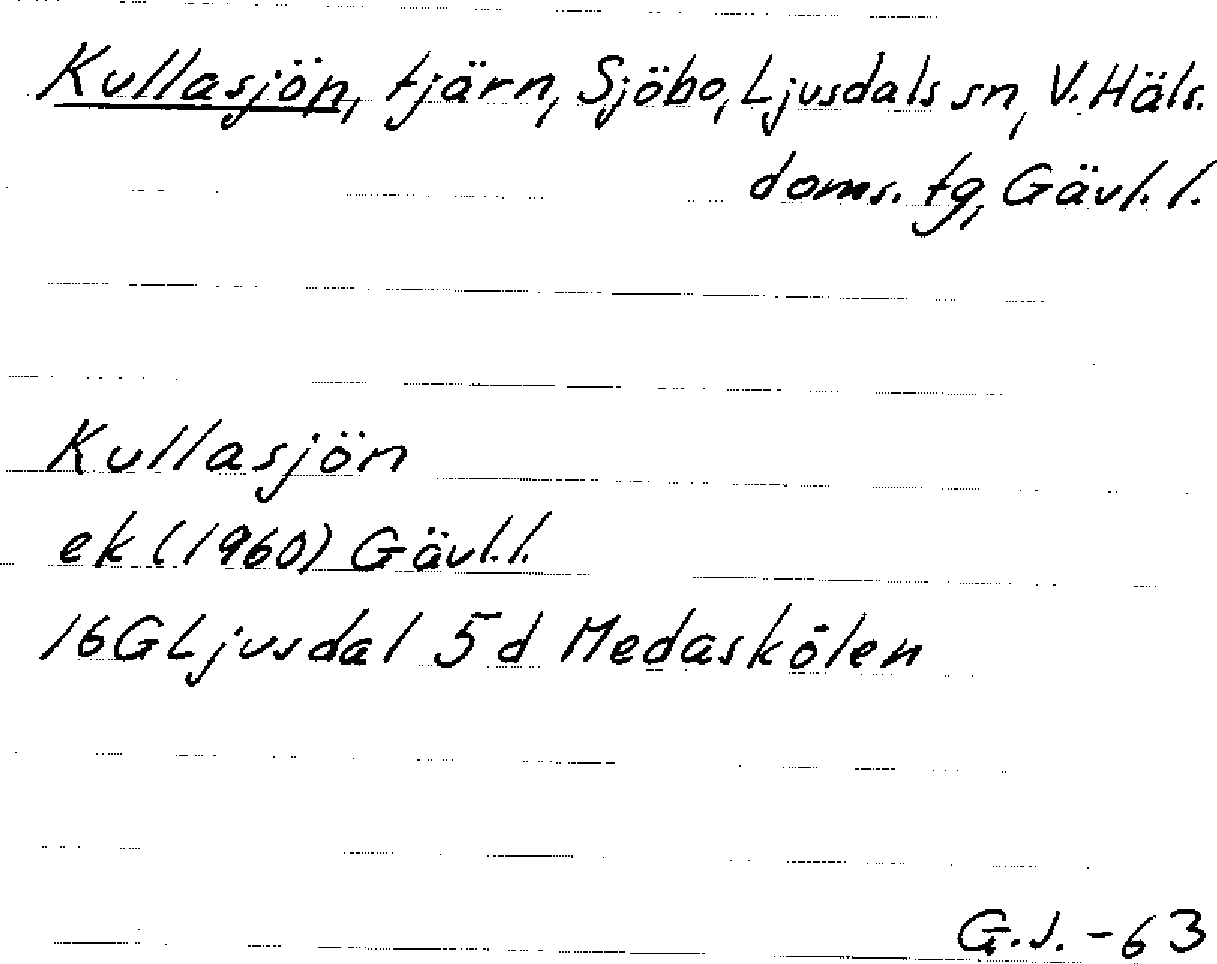 Kullasjön, tjärn, Sjöbo, Ljusdals sn, V. Häls.
doms. tg, Gävl. l.
Kullasjön
ek (1960) Gävl. l.
16G Ljusdal 5 d Medaskölen
G.J. - 63